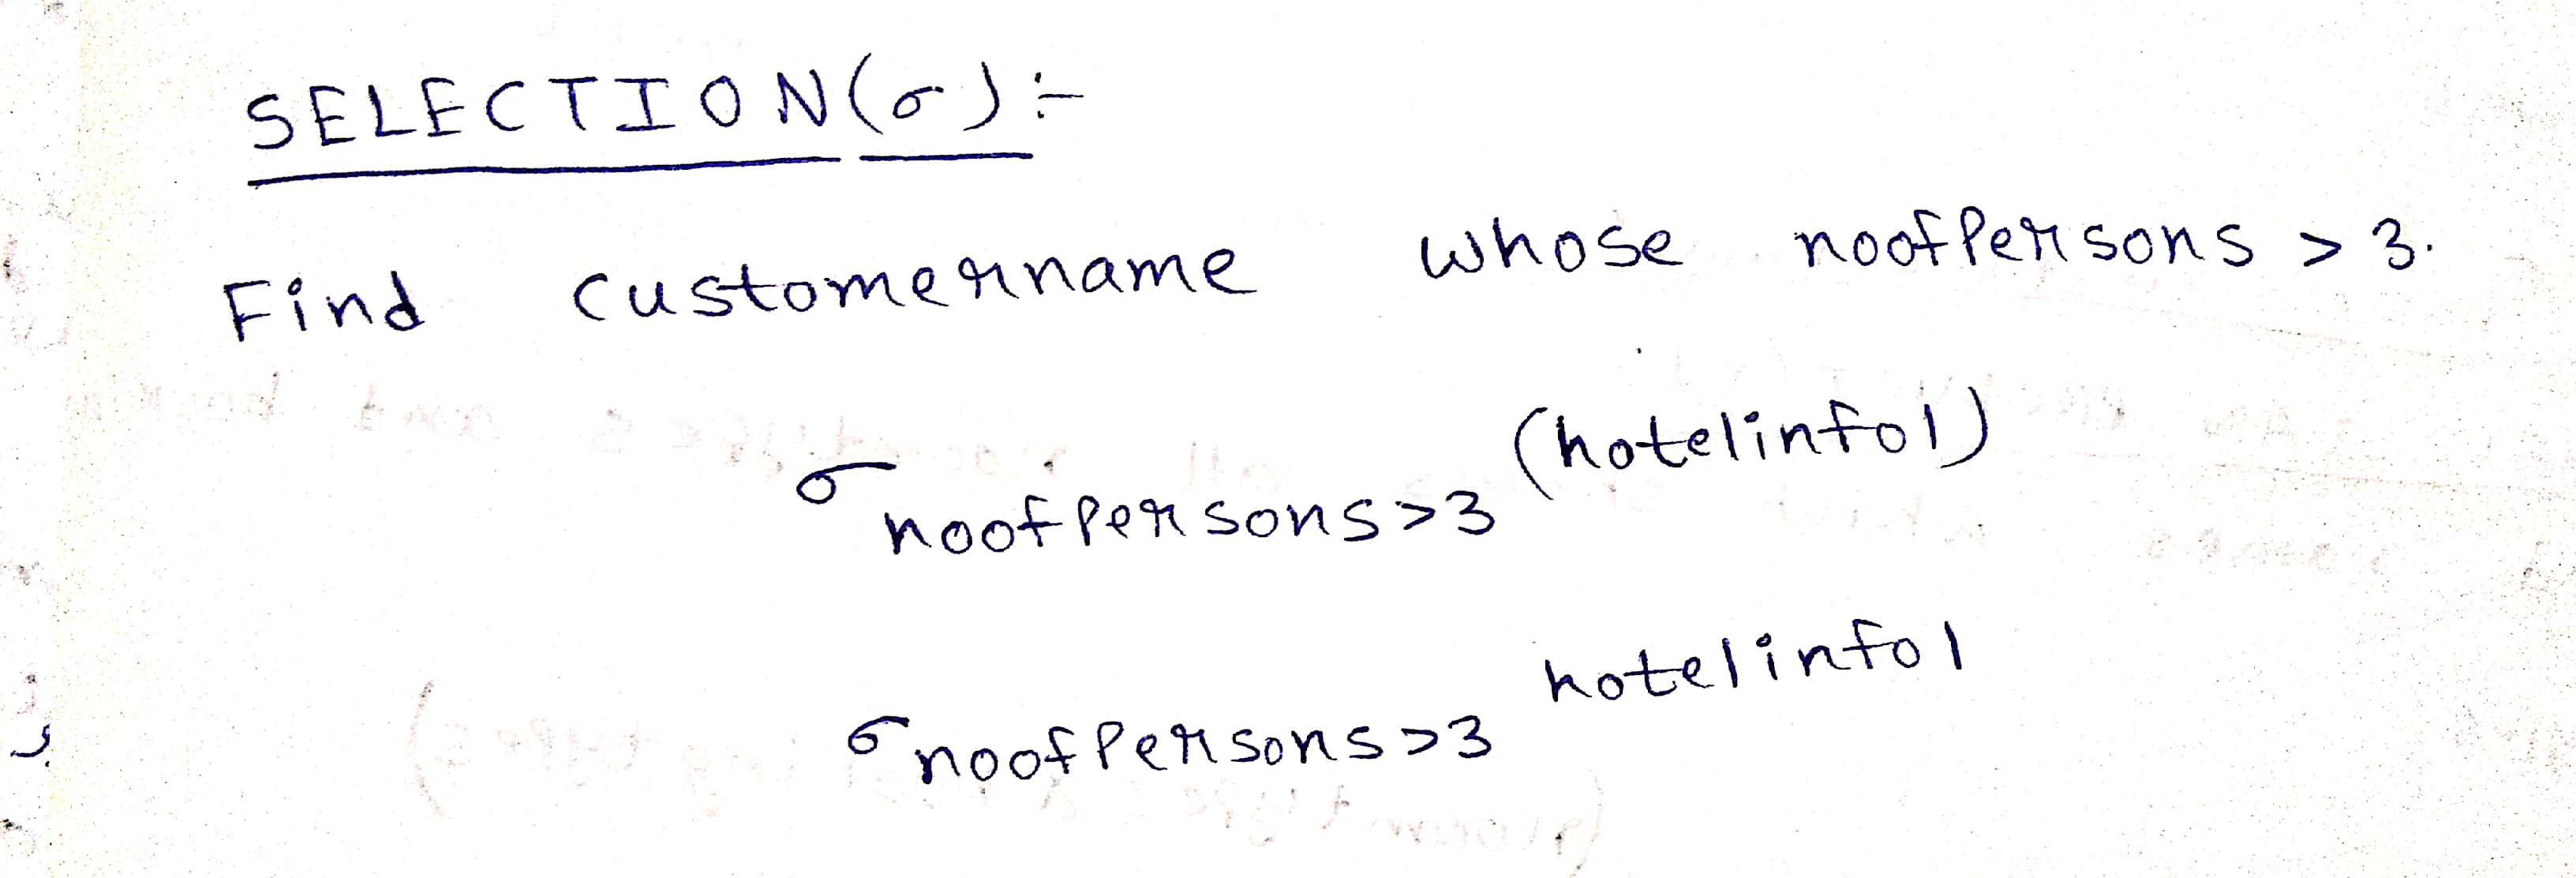 SELECTION(σ):-
Find customername whose noofPersons > 3.
σ noofPersons>3 (hotelinfo1)
σ noofPersons>3 hotelinfo1